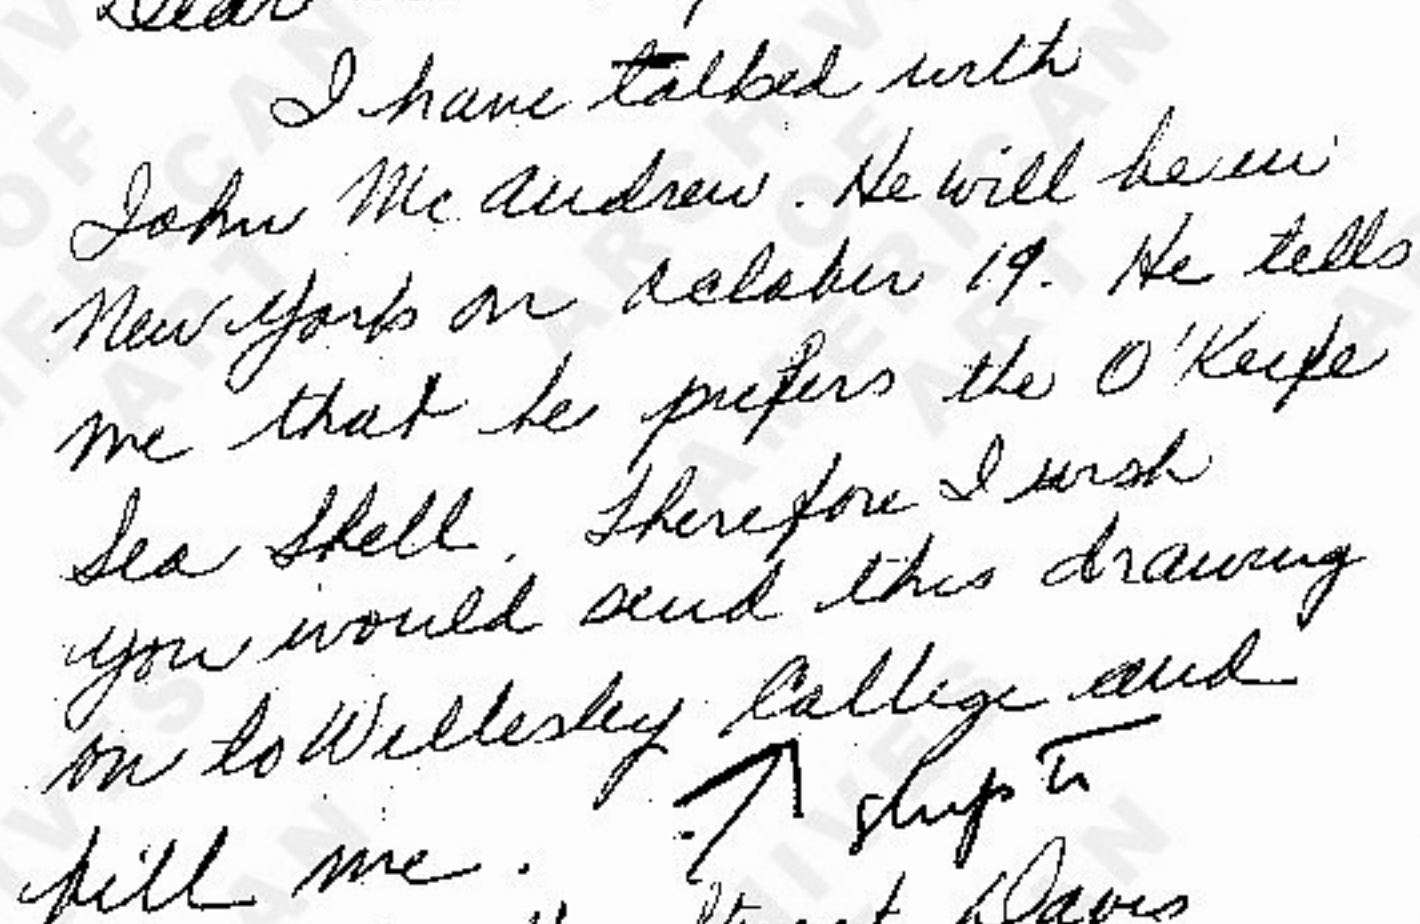 Dear
I have talked with
John McAndrew. He will be in
New York on October 19. He tells
me that he prefers the O'Keefe
Sea Shell. Therefore I wish
you would send this drawing
on to Wellesley College and
ship to
bill me.
Stuart Davis
ARCHIVES OF AMERICAN ART